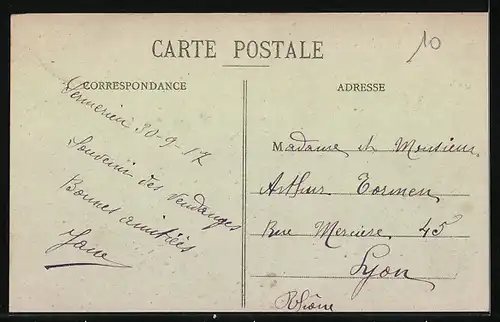 10
CARTE POSTALE
CORRESPONDANCE
30-9-17
Souvenir des vendanges
Bonnes amitiés
Jane
ADRESSE
Madame et Monsieur
Arthur Tormen
Rue Mercière 45
Lyon
Rhône